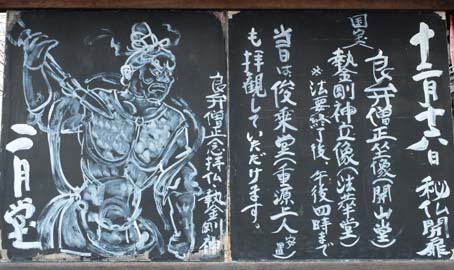 十二月十六日 秘仏開扉
良弁僧正坐像(開山堂)
国宝
執金剛神立像(法華堂)
※法要終了後、午後四時まで
当日は俊乗堂(重源上人
も拝観していただけます。
良弁僧正念持仏・執金剛神
二月堂